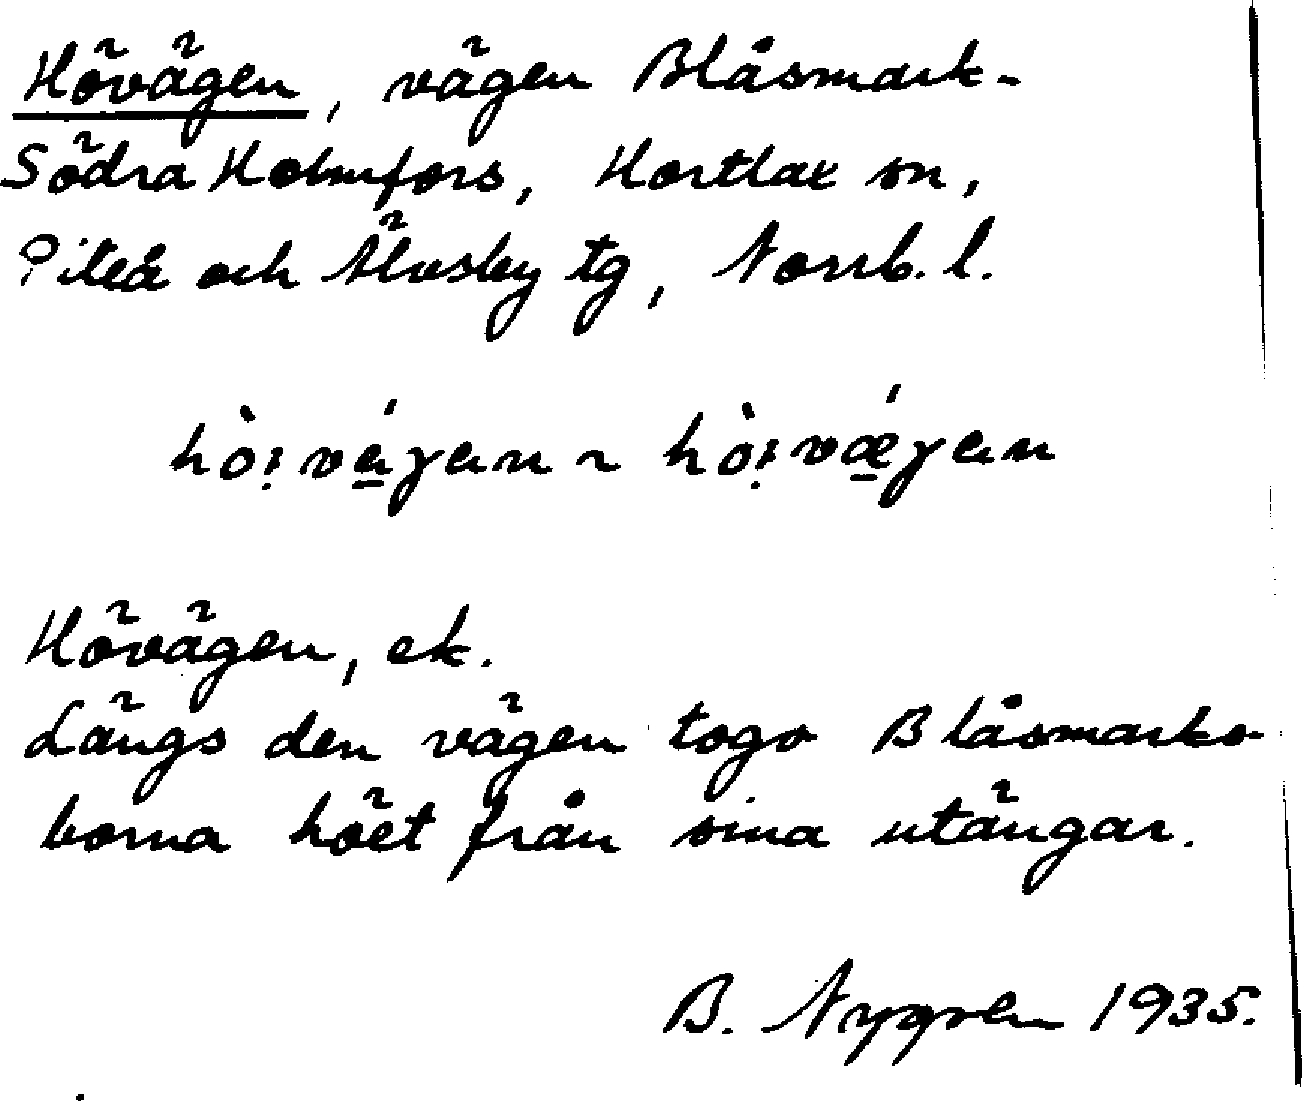 Hövägen, vägen Blåsmark-
Södra Holmfors, Hortlax sn,
Piteå och Älvsby tg, Norrb. l.
Hövägen, ek.
Längs den vägen togo Blåsmarks-
borna höet från sina utängar.
B. Nygren 1935.